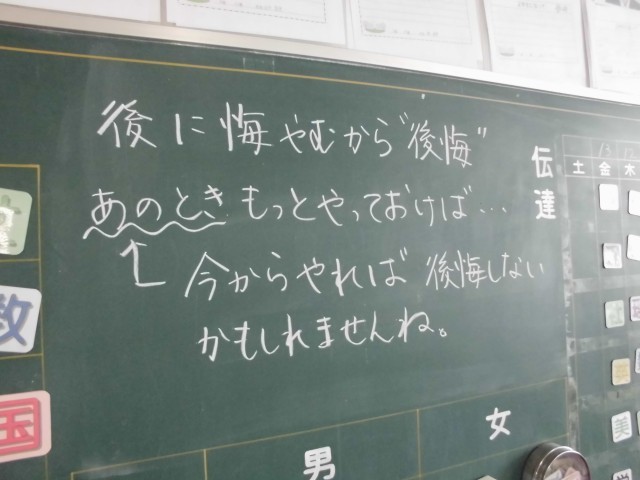 後に悔やむから"後悔"
あのときもっとやっておけば…
今からやれば 後悔しない
かもしれませんね。
伝達
13
土 金 木
数
国
美
男
女